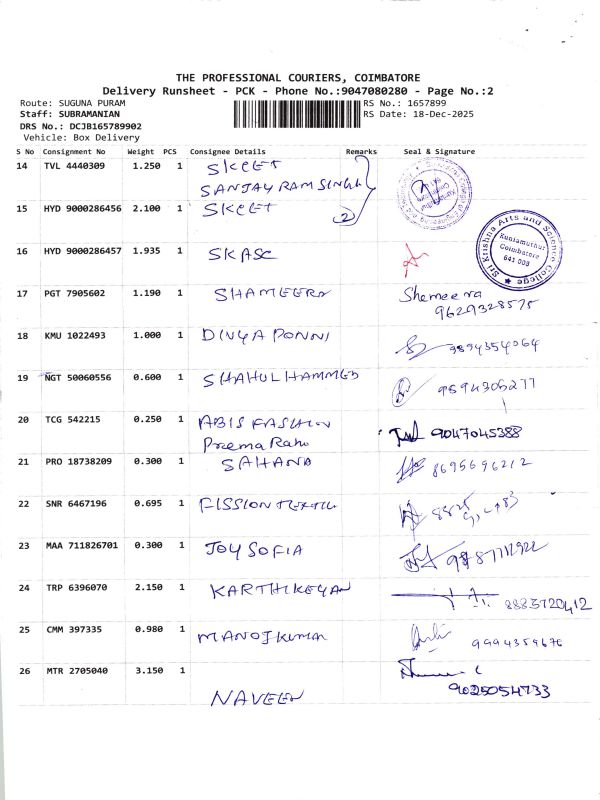 THE PROFESSIONAL COURIERS, COIMBATORE
Delivery Runsheet - PCK - Phone No.:9047080280 - Page No.:2
Route: SUGUNA PURAM RS No.: 1657899
Staff: SUBRAMANIAN RS Date: 18-Dec-2025
DRS No.: DCJB165789902
Vehicle: Box Delivery
S No Consignment No Weight PCS Consignee Details Remarks Seal & Signature
14 TVL 4440309 1.250 1 SKCET
SANJAY RAM SINGH
15 HYD 9000286456 2.100 1 SKCET 2
Sri Krishna Arts and Science College
Kuniamuthur
Coimbatore
641 008
16 HYD 9000286457 1.935 1 SKASC
17 PGT 7905602 1.190 1 SHAMEERA Shemeera
9629328575
18 KMU 1022493 1.000 1 DIVYA PONNI 9894354064
19 NGT 50060556 0.600 1 SHAHUL HAMMED 9894306277
20 TCG 542215 0.250 1 ABIS FASHION 9047045388
Preema
21 PRO 18738209 0.300 1 SAHANA 8695696212
22 SNR 6467196 0.695 1 FISSION TEXTIL
23 MAA 711826701 0.300 1 JOY SOFIA
24 TRP 6396070 2.150 1 KARTHIKEYAN 8883720412
25 CMM 397335 0.980 1 MANOJ KUMAR 9994359676
26 MTR 2705040 3.150 1
NAVEEN 9025054733